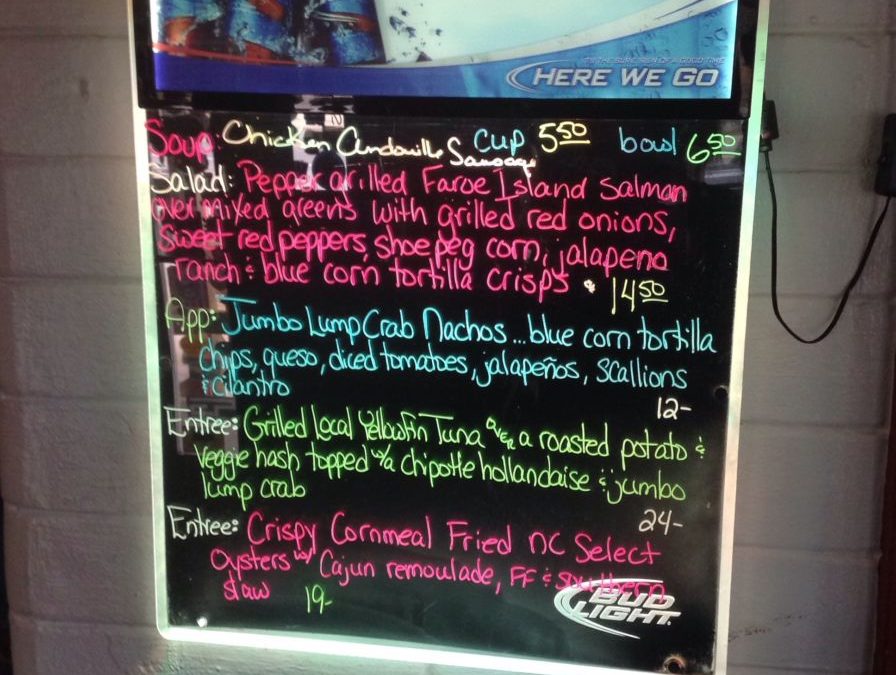 IT'S THE SURE SIGN OF A GOOD TIME
HERE WE GO
Soup: Chicken Andouille Sausage Cup 5.50 bowl 6.50
Salad: Pepper grilled Faroe Island Salmon
over mixed greens with grilled red onions,
sweet red peppers, shoepeg corn, jalapeno
ranch & blue corn tortilla crisps 14.50
App: Jumbo Lump Crab Nachos... blue corn tortilla
chips, queso, diced tomatoes, jalapeños, scallions
& cilantro
12-
Entree: Grilled Local Yellowfin Tuna OVER a roasted potato &
veggie hash topped w/a chipotle hollandaise & jumbo
lump crab
24-
Entree: Crispy Cornmeal Fried NC Select
Oysters w/ Cajun remoulade, FF & southern
slaw 19-
BUD LIGHT